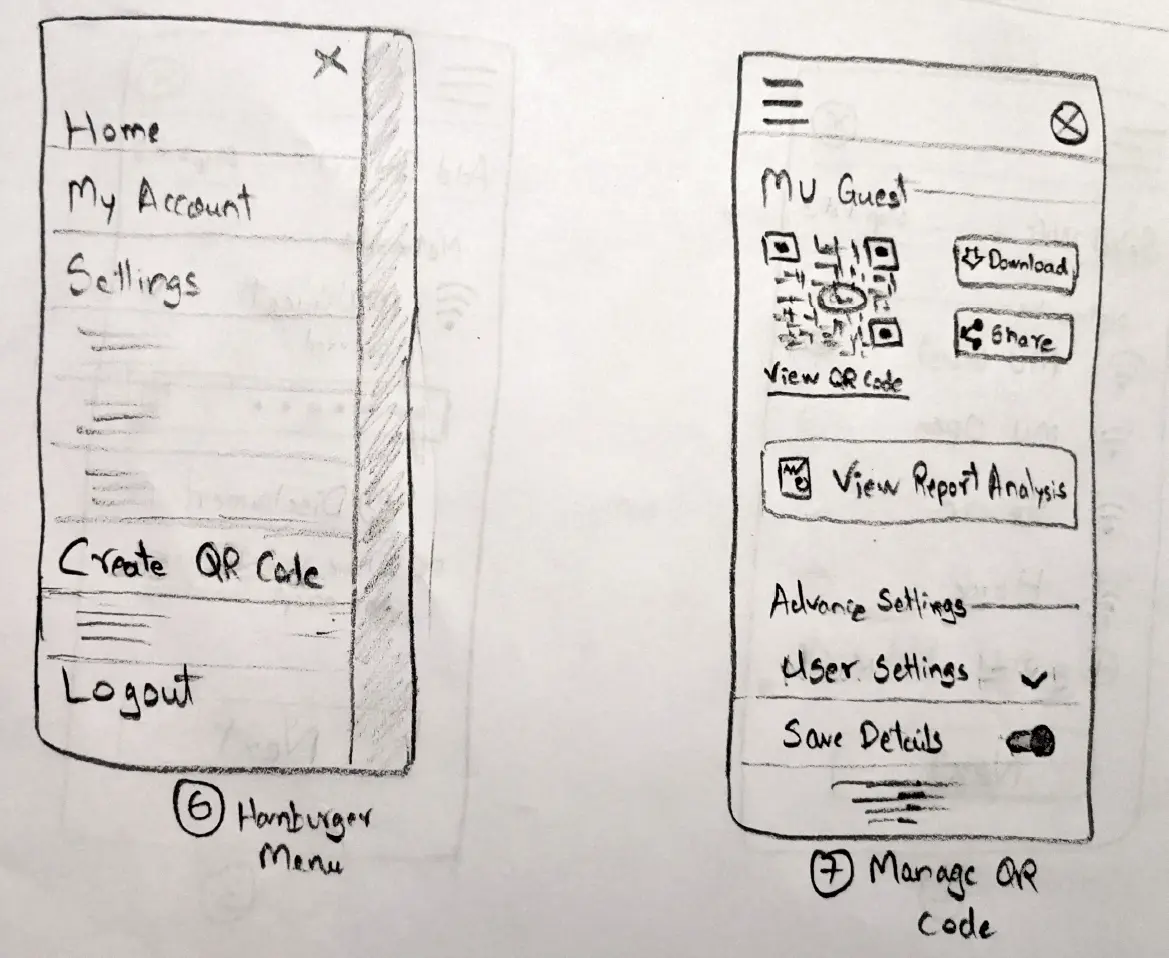 Home
My Account
Settings
Create QR Code
Logout
6 Hamburger
Menu
My Guest
Download
Share
View QR Code
View Report Analysis
Advance Settings
User Settings
Save Details
7 Manage QR
Code